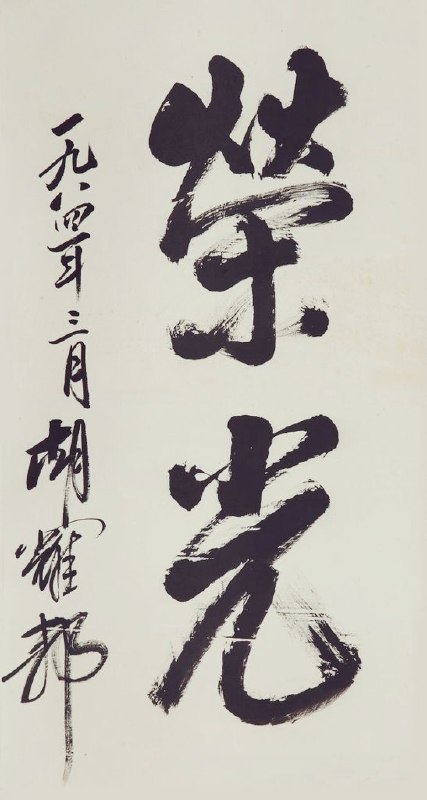 榮光
一九八四年三月胡耀邦